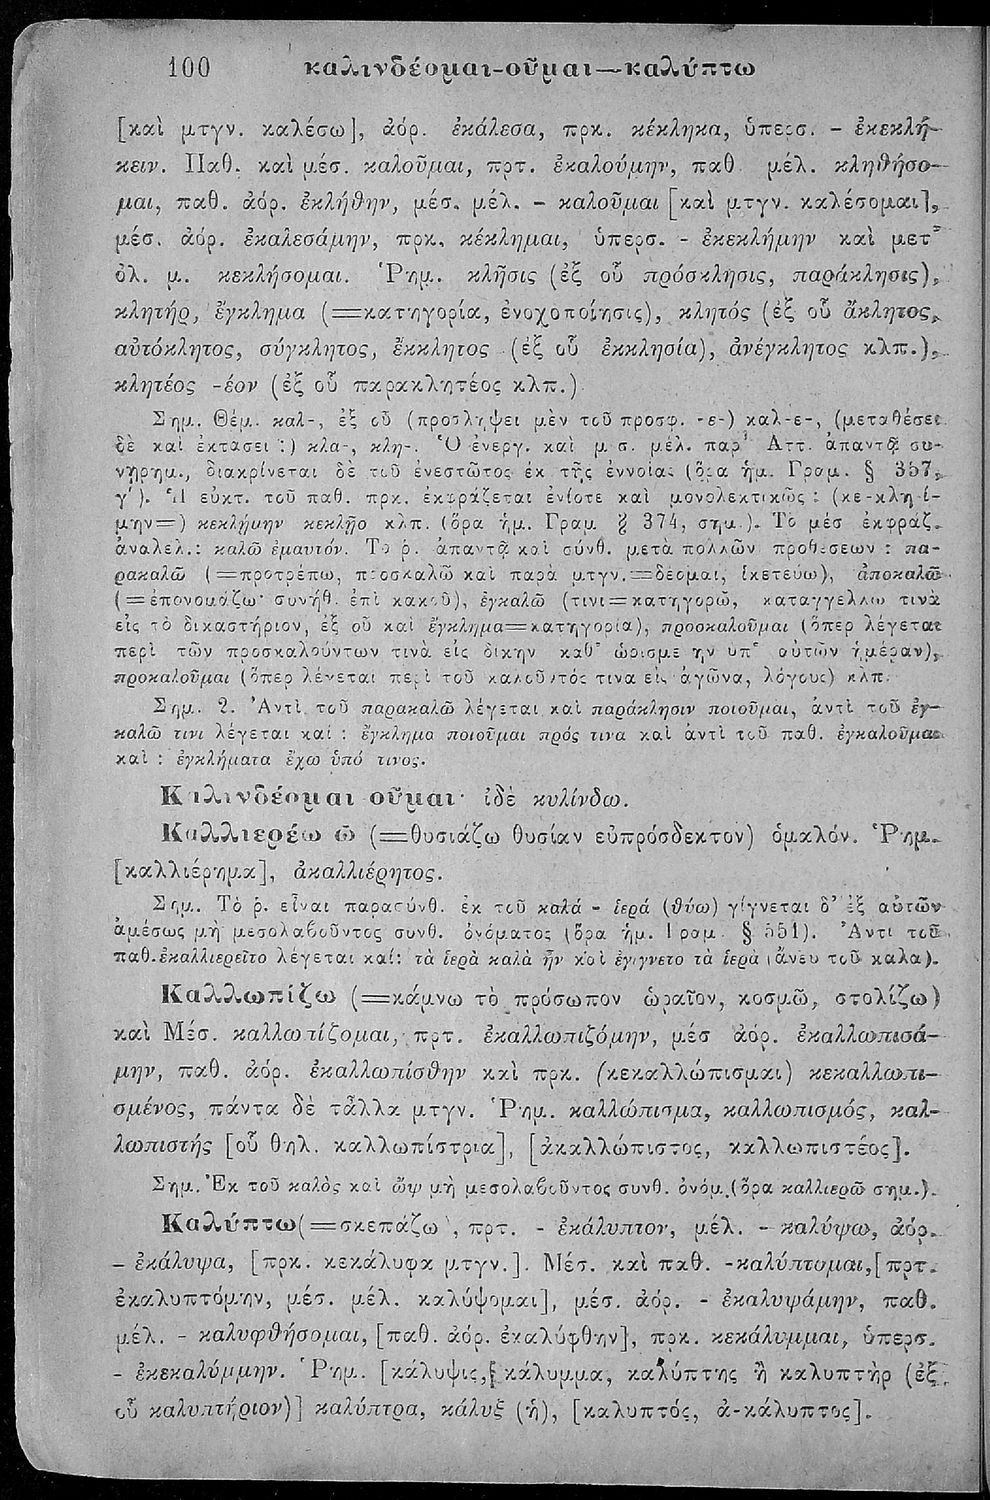 100 καλινδέομαι-οῦμαι—καλύπτω
[καὶ μτγν. καλέσω], ἀόρ. ἐκάλεσα, πρκ. κέκληκα, ὑπερσ. - ἐκεκλή-
κειν. Παθ. καὶ μέσ. καλοῦμαι, πρτ. ἐκαλούμην, παθ. μέλ. κληθήσο-
μαι, παθ. ἀόρ. ἐκλήθην, μέσ. μέλ. - καλοῦμαι [καὶ μτγν. καλέσομαι],
μέσ. ἀόρ. ἐκαλεσάμην, πρκ. κέκλημαι, ὑπερσ. - ἐκεκλήμην καὶ μετ'
ὀλ. μ. κεκλήσομαι. Ῥημ. κλῆσις (ἐξ οὗ πρόσκλησις, παράκλησις),
κλητήρ, ἔγκλημα (=κατηγορία, ἐνοχοποίησις), κλητός (ἐξ οὗ ἄκλητος,
αὐτόκλητος, σύγκλητος, ἔκκλητος (ἐξ οὗ ἐκκλησία), ἀνέγκλητος κλπ.),
κλητέος -έον (ἐξ οὗ παρακλητέος κλπ.)
Σημ. Θέμ. καλ-, ἐξ οὗ (προσλήψει μὲν τοῦ προσφ. -ε-) καλ-ε-, (μεταθέσει
δὲ καὶ ἐκτάσει :) κλα-, κλη-. Ὁ ἐνεργ. καὶ μέσ. μέλ. παρ' Ἀττ. ἀπαντᾷ συ-
νῃρημ., διακρίνεται δὲ τοῦ ἐνεστῶτος ἐκ τῆς ἐννοίας (ὅρα ἡμ. Γραμ. § 357,
γ'). Ἡ εὐκτ. τοῦ παθ. πρκ. ἐκφράζεται ἐνίοτε καὶ μονολεκτικῶς : (κε-κλη-ί-
μην=) κεκλῄμην κεκλῇο κλπ. (ὅρα ἡμ. Γραμ. § 374, σημ.). Τὸ μέσ ἐκφράζ.
ἀναλελ.: καλῶ ἐμαυτόν. Τὸ ῥ. ἀπαντᾷ καὶ σύνθ. μετὰ πολλῶν προθέσεων : πα-
ρακαλῶ (=προτρέπω, προσκαλῶ καὶ παρὰ μτγν.=δέομαι, ἱκετεύω), ἀποκαλῶ
(=ἐπονομάζω· συνήθ. ἐπὶ κακοῦ), ἐγκαλῶ (τινι=κατηγορῶ, καταγγέλλω τινὰ
εἰς τὸ δικαστήριον, ἐξ οὗ καὶ ἔγκλημα=κατηγορία), προσκαλοῦμαι (ὅπερ λέγεται
περὶ τῶν προσκαλούντων τινὰ εἰς δίκην καθ' ὡρισμένην ὑπ' αὐτῶν ἡμέραν),
προκαλοῦμαι (ὅπερ λέγεται περὶ τοῦ καλοῦντός τινα εἰς ἀγῶνα, λόγους) κλπ.
Σημ. 2. Ἀντὶ τοῦ παρακαλῶ λέγεται καὶ παράκλησιν ποιοῦμαι, ἀντὶ τοῦ ἐγ-
καλῶ τινι λέγεται καί : ἔγκλημα ποιοῦμαι πρός τινα καὶ ἀντὶ τοῦ παθ. ἐγκαλοῦμαι
καὶ : ἐγκλήματα ἔχω ὑπό τινος.
Καλινδέομαι οῦμαι· ἰδὲ κυλίνδω.
Καλλιερέω ῶ (=θυσιάζω θυσίαν εὐπρόσδεκτον) ὁμαλόν. Ῥημ.
[καλλιέρημα], ἀκαλλιέρητος.
Σημ. Τὸ ῥ. εἶναι παρασύνθ. ἐκ τοῦ καλά - ἱερά (θύω) γίγνεται δ' ἐξ αὐτῶν
ἀμέσως μὴ μεσολαβοῦντος συνθ. ὀνόματος (ὅρα ἡμ. Γραμ. § 551). Ἀντὶ τοῦ
παθ. ἐκαλλιερεῖτο λέγεται καί: τὰ ἱερὰ καλὰ ἦν καὶ ἐγίγνετο τὰ ἱερὰ (ἄνευ τοῦ καλά).
Καλλωπίζω (=κάμνω τὸ πρόσωπον ὡραῖον, κοσμῶ, στολίζω)
καὶ Μέσ. καλλωπίζομαι, πρτ. ἐκαλλωπιζόμην, μέσ ἀόρ. ἐκαλλωπισά-
μην, παθ. ἀόρ. ἐκαλλωπίσθην καὶ πρκ. (κεκαλλώπισμαι) κεκαλλωπι-
σμένος, πάντα δὲ τἆλλα μτγν. Ῥημ. καλλώπισμα, καλλωπισμός, καλ-
λωπιστής [οὗ θηλ. καλλωπίστρια], [ἀκαλλώπιστος, καλλωπιστέος].
Σημ. Ἐκ τοῦ καλὸς καὶ ὤψ μὴ μεσολαβοῦντος συνθ. ὀνόμ. (ὅρα καλλιερῶ σημ.).
Καλύπτω (=σκεπάζω), πρτ. - ἐκάλυπτον, μέλ. - καλύψω, ἀόρ.
- ἐκάλυψα, [πρκ. κεκάλυφα μτγν.]. Μέσ. καὶ παθ. -καλύπτομαι, [πρτ.
ἐκαλυπτόμην, μέσ. μέλ. καλύψομαι], μέσ. ἀόρ. - ἐκαλυψάμην, παθ.
μέλ. - καλυφθήσομαι, [παθ. ἀόρ. ἐκαλύφθην], πρκ. κεκάλυμμαι, ὑπερσ.
- ἐκεκαλύμμην. Ῥημ. [κάλυψις, κάλυμμα, καλύπτης ἢ καλυπτὴρ (ἐξ
οὗ καλυπτήριον)] καλύπτρα, κάλυξ (ἡ), [καλυπτός, ἀ-κάλυπτος].